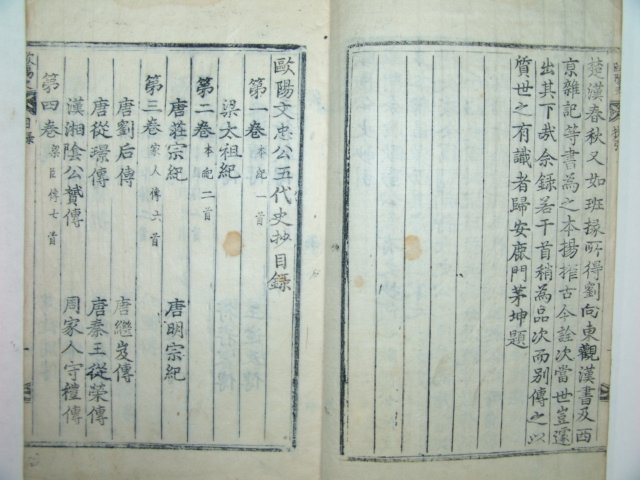 楚漢春秋又如班掾所得劉向東觀漢書及西
京雜記等書為之本揚搉古今詮次當世豈遽
出其下哉余錄若干首稍為品次而別傳之以
質世之有識者歸安鹿門茅坤題
歐陽文忠公五代史抄目錄
第一卷 本紀一首
梁太祖紀
第二卷 本紀二首
唐莊宗紀 唐明宗紀
第三卷 家人傳六首
唐劉后傳 唐繼岌傳
唐從璟傳 唐秦王從榮傳
漢湘陰公贇傳 周家人守禮傳
第四卷 梁臣傳七首
目錄